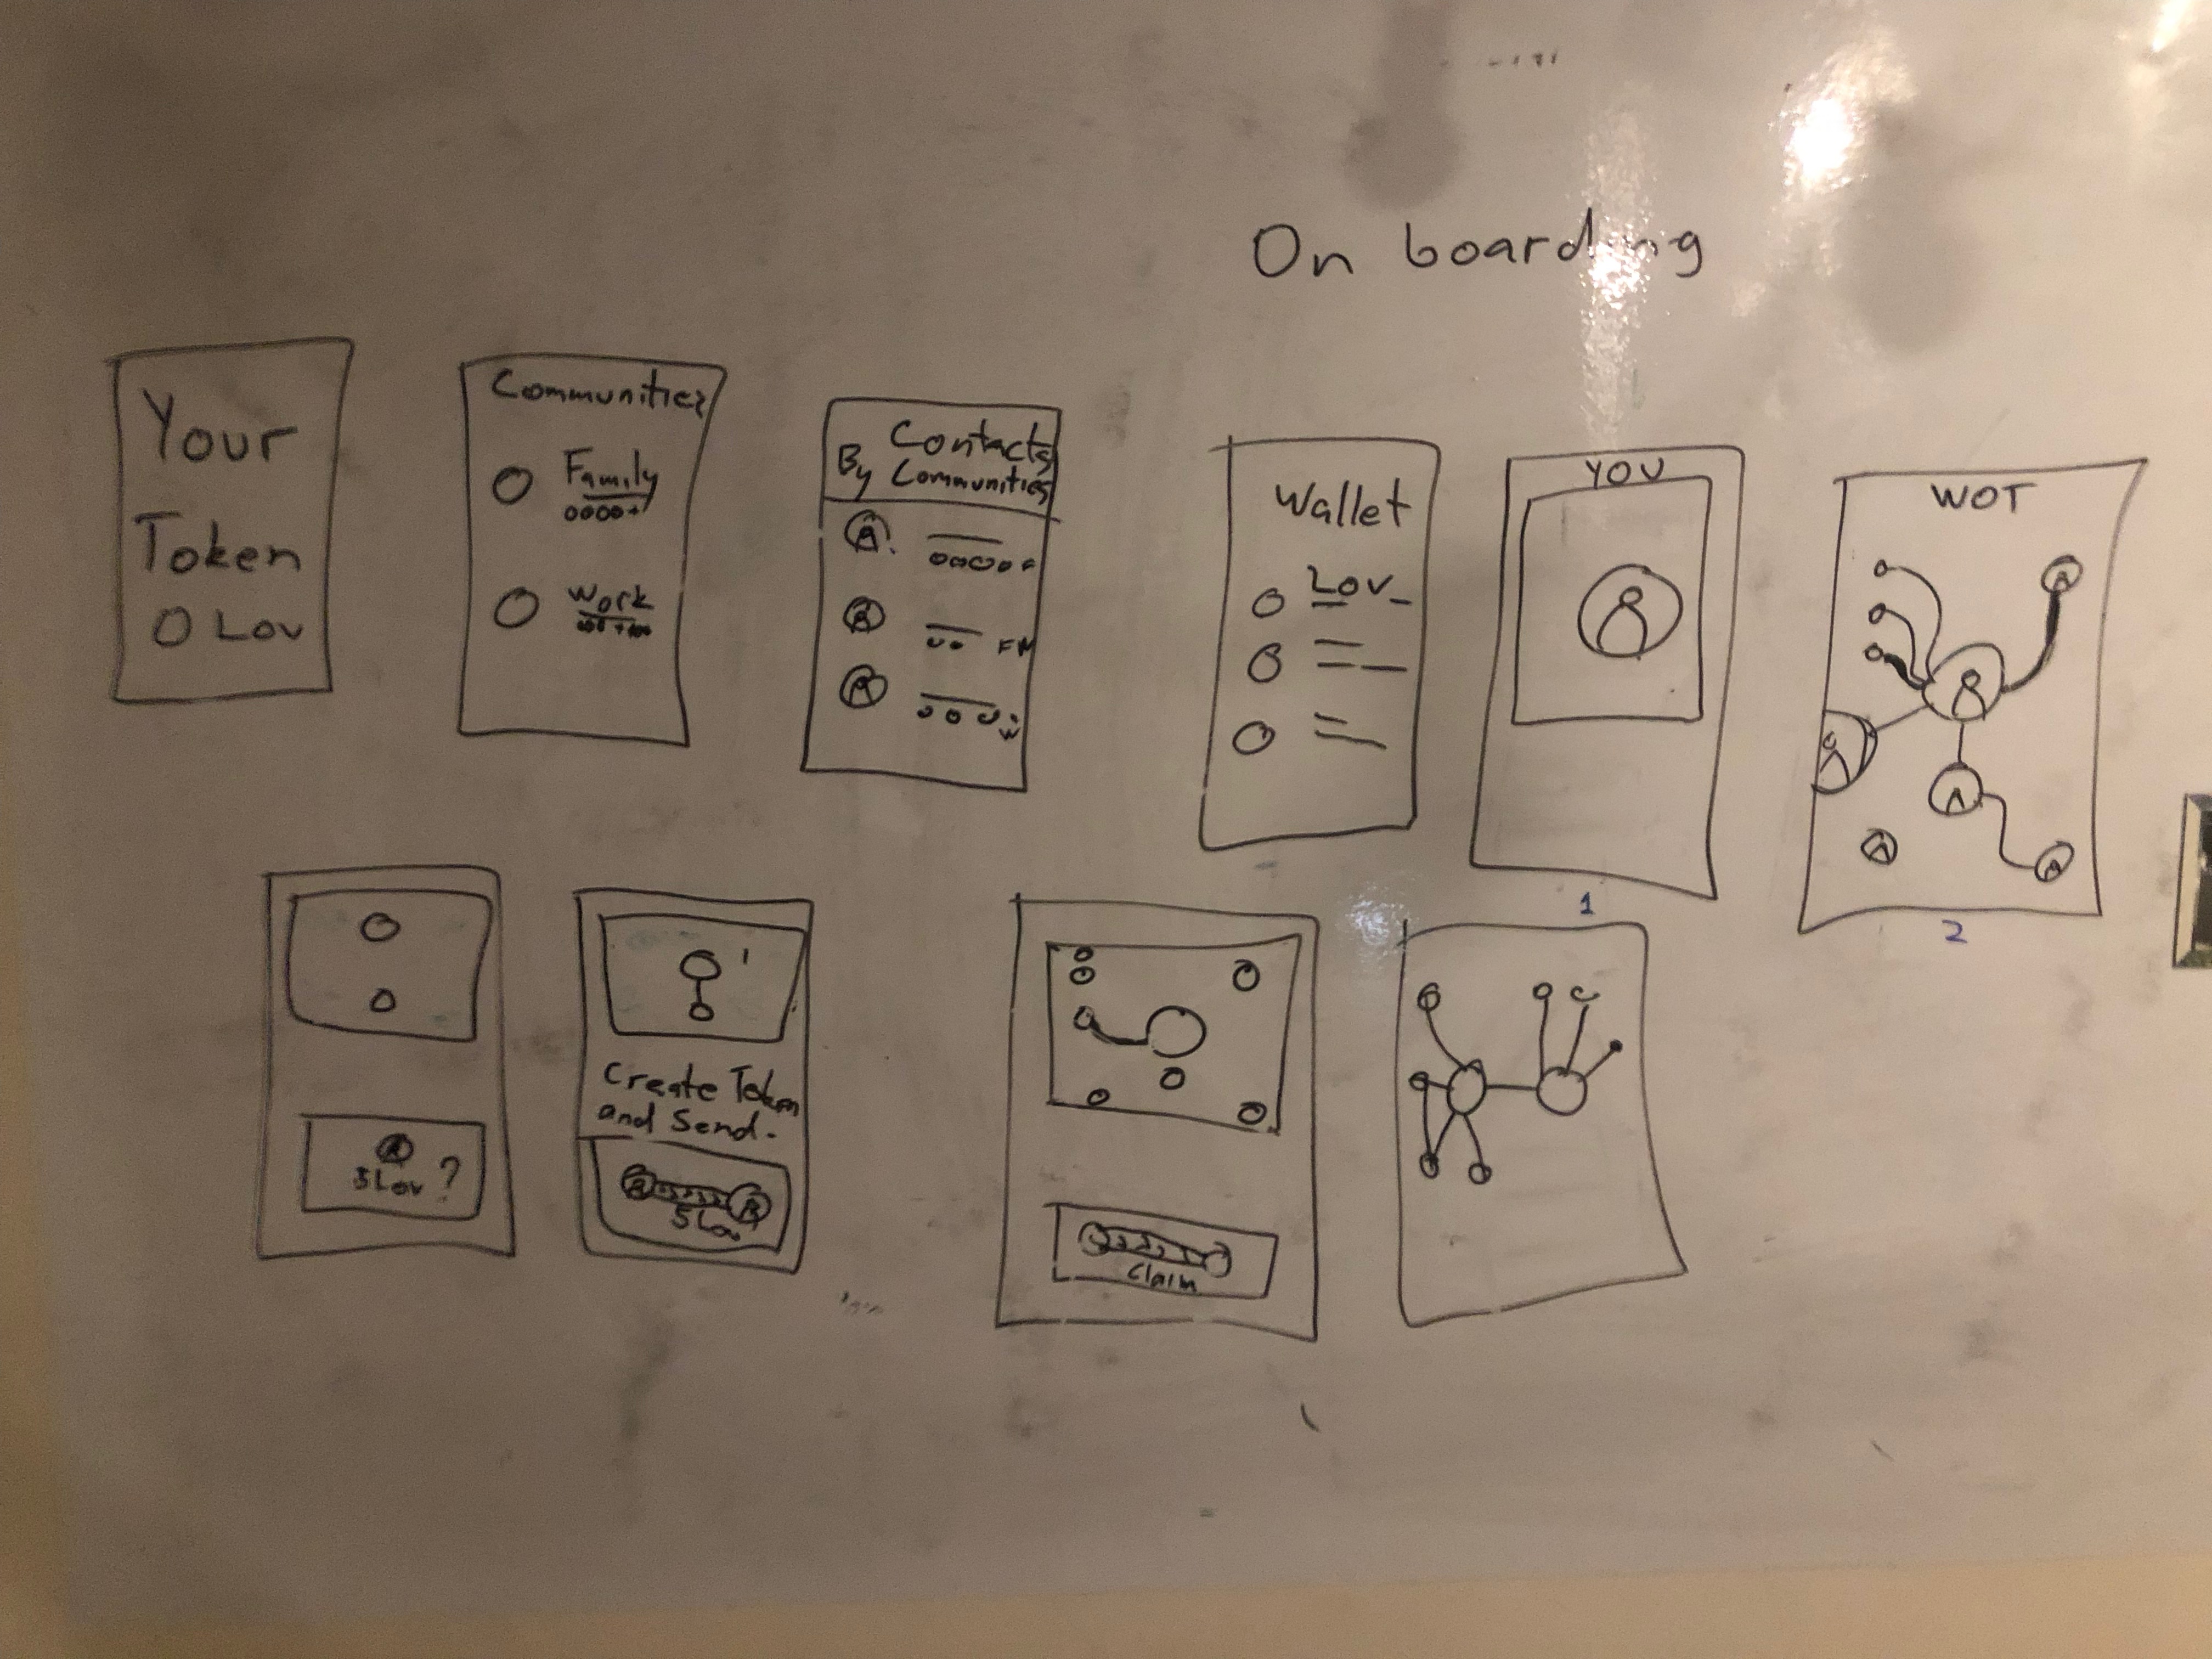 On boarding
Your
Token
O Lov
Communities
Family
Work
Contacts
By Communities
FM
W
Wallet
Lov
YOU
1
WOT
2
5 Lov ?
Create Token
and Send.
5 Lov
Claim